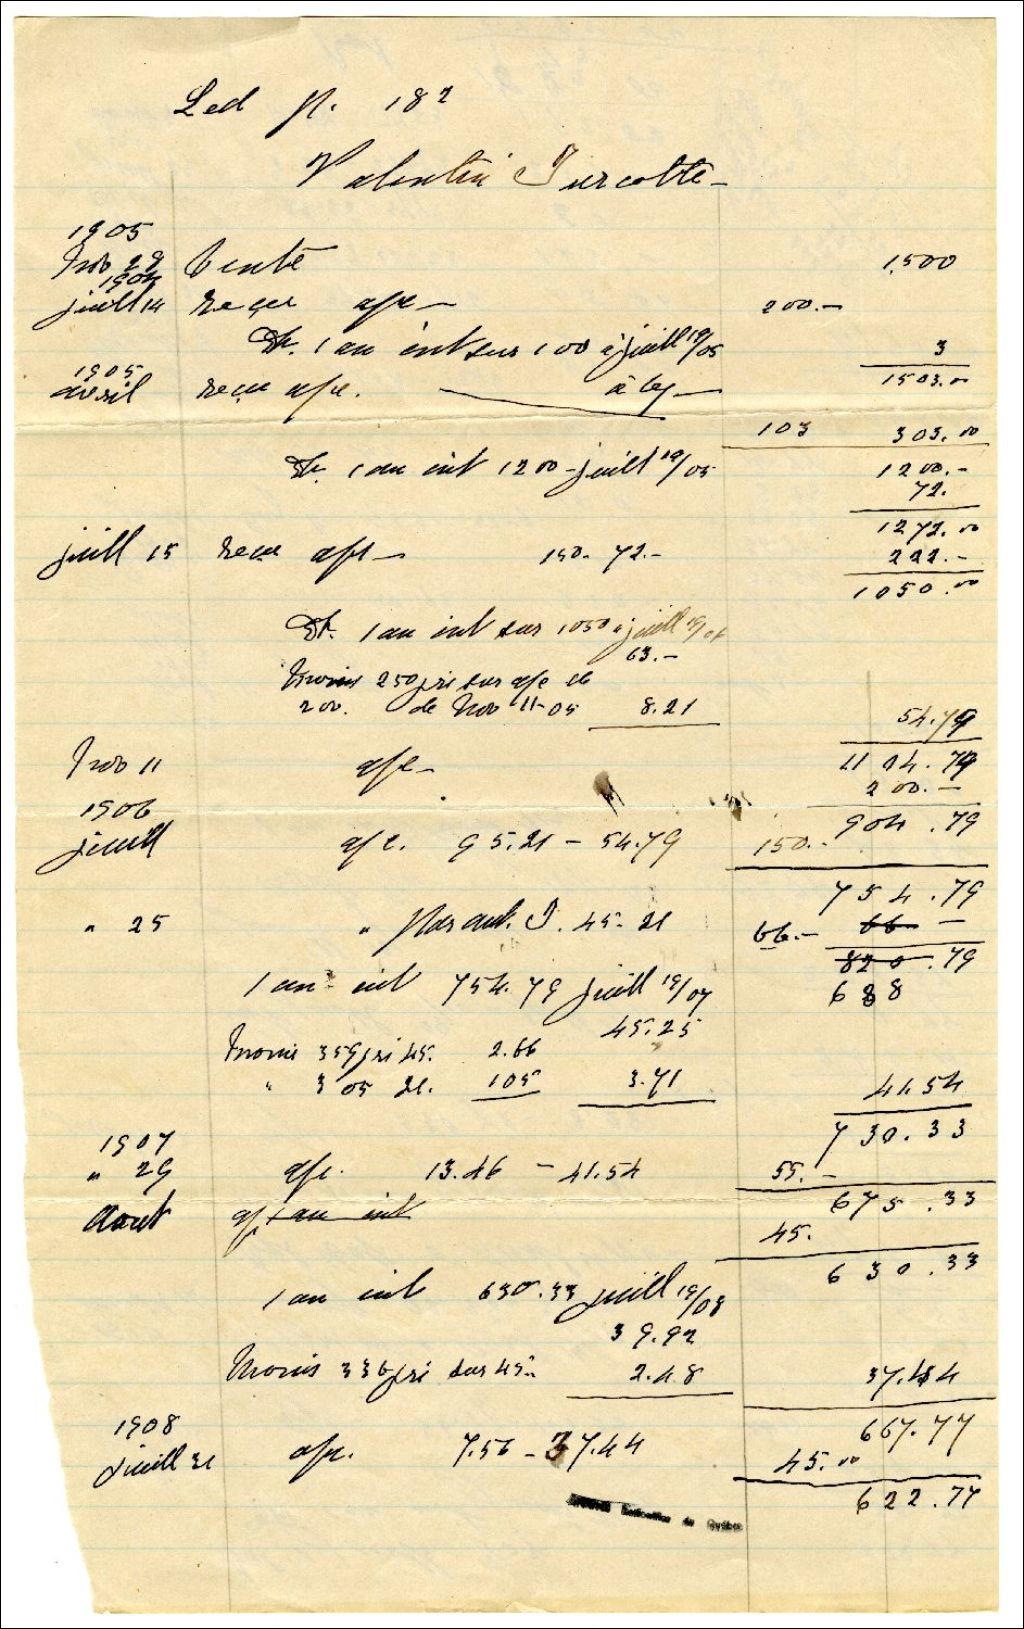 Led p. 182
Valentin Turcotte
1905
Nov 28 Vente 1,500
1904
juill 14 reçu a/c 200.—
Dt. 1 an int sur 100 à juill 19/05 3
1905 1503.00
avril reçu a/c.
103 303.00
Dt. 1 an int 1200 juill 19/05 1200.—
72.
1272.00
juill 15 reçu a/c 150. 72.— 222.—
1050.00
Dt. 1 an int sur 1050 à juill 19/06
63.—
Moins 250 jrs sur a/c de
200. de Nov 11-05 8.21 54.79
Nov 11 a/c 1104.79
200.—
1906
juill a/c. 95.21 – 54.79 150.. 904.79
754.79
" 25 " par ant. T. 45.21 66.— 66 —
820.79
1 an int 754.79 juill 19/07 688
45.25
Moins 359 jrs 45. 2.66
" 3 05 21. 105 3.71 41.54
1907 730.33
" 29 a/c. 13.46 – 41.54 55.—
Aout a/c 1 an int 675.33
45.
630.33
1 an int 630.33 juill 19/08
39.92
Moins 336 jrs sur 45.. 2.48 37.44
1908 667.77
juill 31 a/c. 7.56 – 37.44 45.00
622.77